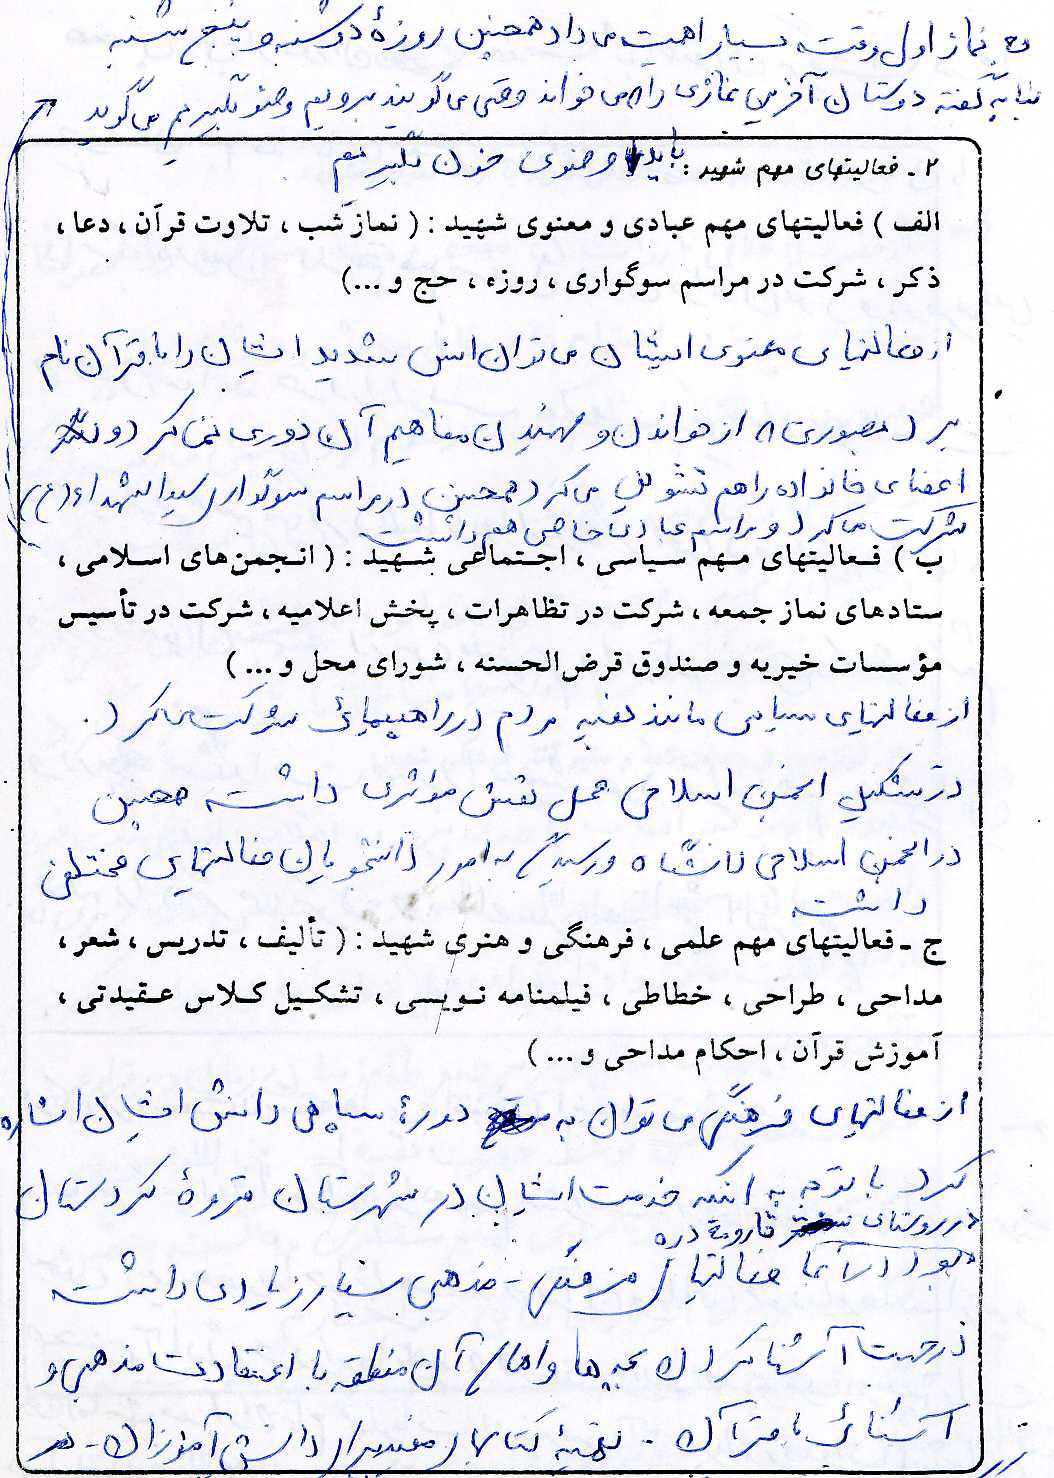 به نماز اول وقت بسیار اهمیت می داد همچنین روزۀ دوشنبه و پنج شنبه
بنا به گفته دوستان آخرین نمازی را که می خواند وقتی می گویند برویم وضو بگیریم می گوید
۲ ـ فعالیتهای مهم شهید : باید وضوی خون بگیریم
الف ) فعالیتهای مهم عبادی و معنوی شهید : ( نماز شب ، تلاوت قرآن ، دعا ،
ذکر ، شرکت در مراسم سوگواری ، روزه ، حج و ...)
از فعالیتهای معنوی ایشان می توان انس شدید ایشان را با قرآن نام
برد بصوری که از خواندن و فهمیدن مفاهیم آن دوری نمی کرد و
اعضای خانواده را هم تشویق می کرد همچنین در مراسم سوگواری سیدالشهداء (ع)
شرکت می کرد و مراسم عبادت خاصی هم داشت
ب ) فعالیتهای مهم سیاسی ، اجتماعی شهید : ( انجمن‌های اسلامی ،
ستادهای نماز جمعه ، شرکت در تظاهرات ، پخش اعلامیه ، شرکت در تأسیس
مؤسسات خیریه و صندوق قرض‌الحسنه ، شورای محل و ... )
از فعالیتهای سیاسی مانند بقیه مردم در راهپیمائی شرکت می کرد .
در تشکیل انجمن اسلامی محل نقش مؤثری داشت همچنین
در انجمن اسلامی دانشگاه و رسیدگی به امور دانشجویان فعالیتهای مختلفی
داشت
ج ـ فعالیتهای مهم علمی ، فرهنگی و هنری شهید : ( تألیف ، تدریس ، شعر ،
مداحی ، طراحی ، خطاطی ، فیلمنامه نویسی ، تشکیل کلاس عقیدتی ،
آموزش قرآن ، احکام مداحی و ... )
از فعالیتهای فرهنگی می توان به دورۀ سپاهی دانش ایشان اشاره
کرد با توجه به اینکه خدمت ایشان در شهرستان قروۀ کردستان
در روستای قاروبه دره
بود در آنجا فعالیتهای فرهنگی - مذهبی بسیار زیادی داشت
از جهت آشنا کردن بچه ها و اهالی آن منطقه با اعتقادات مذهبی و
آشنائی با قرآن - تهیۀ کتابهای مفید برای دانش آموزان -